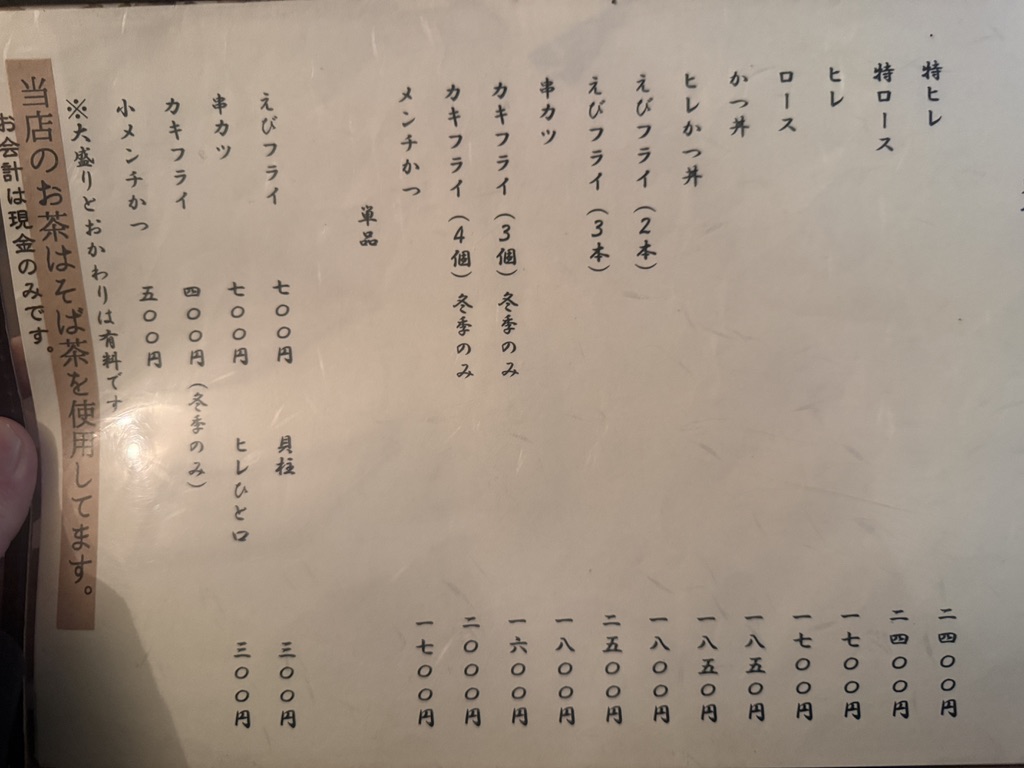 特ヒレ 二四〇〇円
特ロース 二四〇〇円
ヒレ 一七〇〇円
ロース 一七〇〇円
かつ丼 一八五〇円
ヒレかつ丼 一八五〇円
えびフライ（2本） 一八〇〇円
えびフライ（3本） 二五〇〇円
串カツ 一八〇〇円
カキフライ（3個）冬季のみ 一六〇〇円
カキフライ（4個）冬季のみ 二〇〇〇円
メンチかつ 一七〇〇円
単品
えびフライ 七〇〇円 貝柱 三〇〇円
串カツ 七〇〇円 ヒレひと口 三〇〇円
カキフライ 四〇〇円（冬季のみ）
小メンチかつ 五〇〇円
※大盛りとおかわりは有料です
当店のお茶はそば茶を使用してます。
お会計は現金のみです。